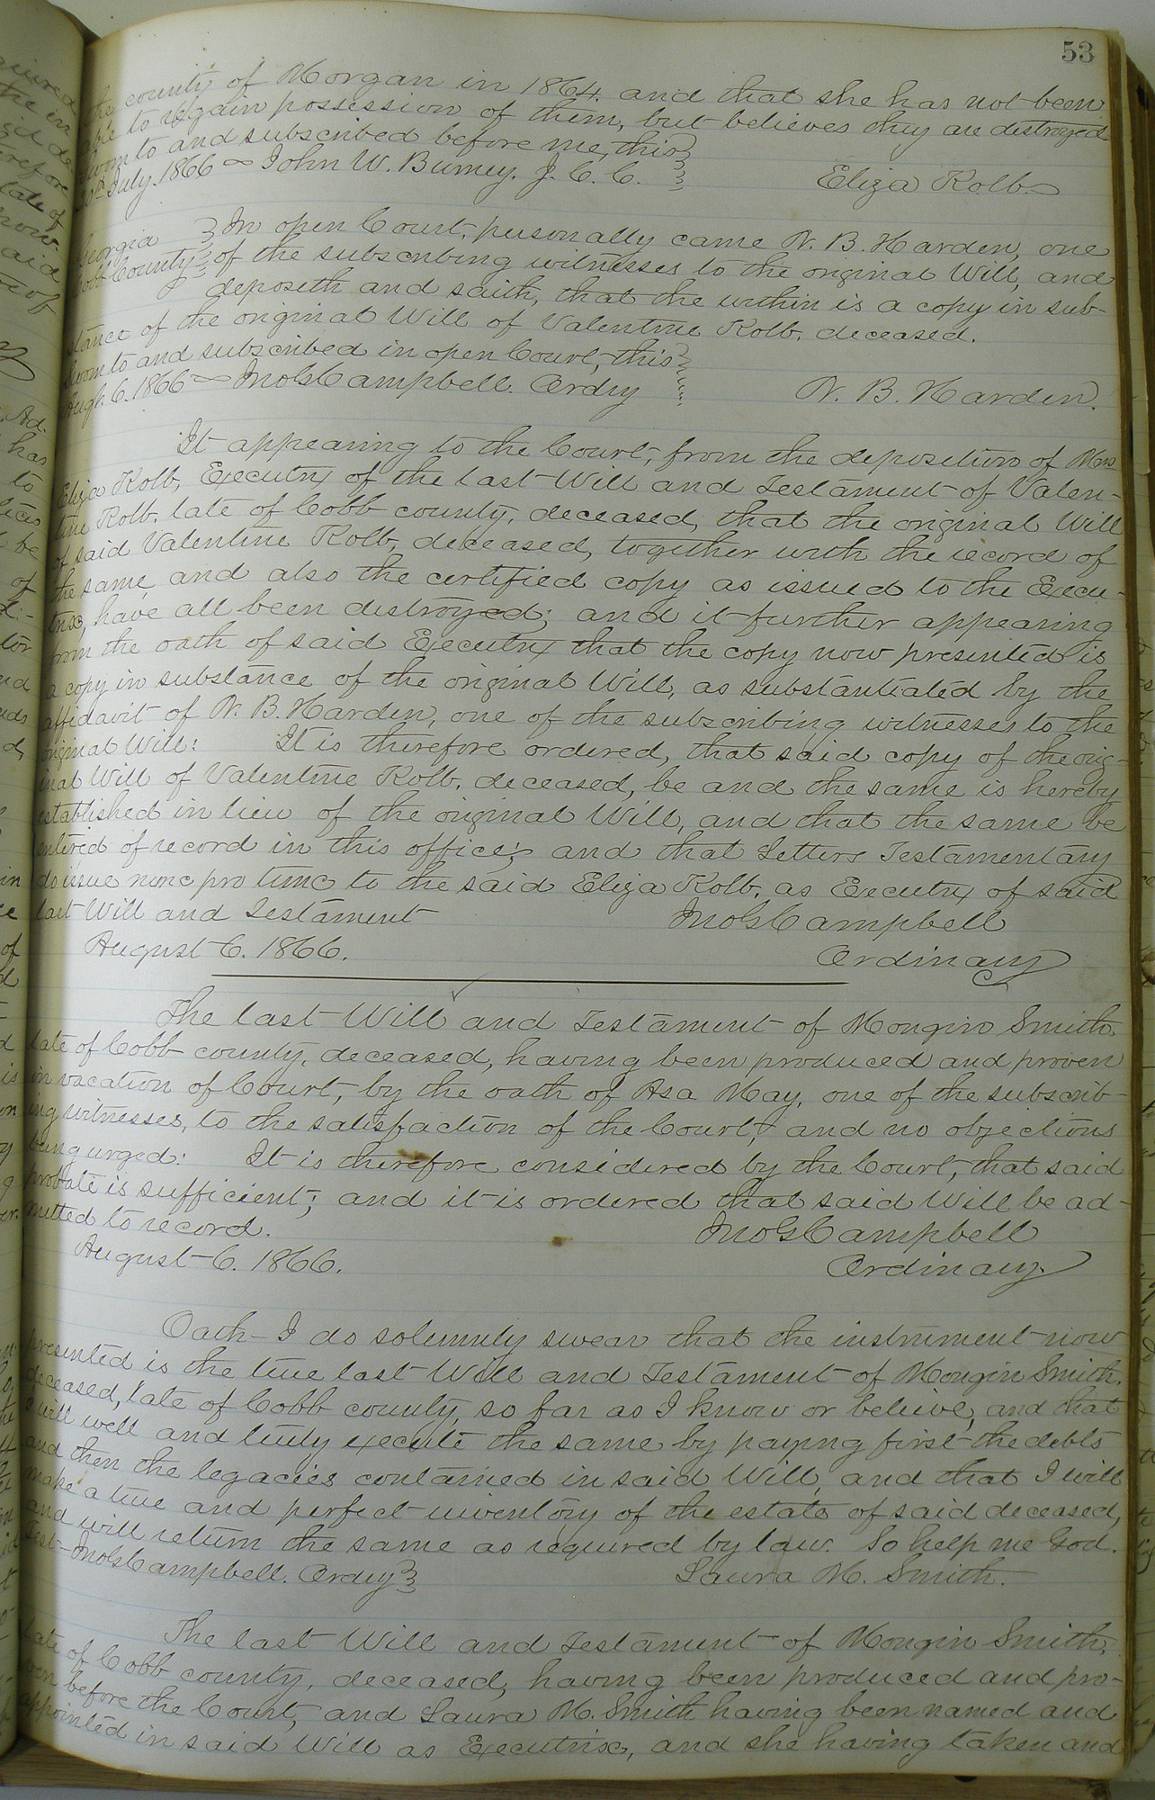 53
the county of Morgan in 1864. and that she has not been
able to regain possession of them, but believes they are destroyed
Sworn to and subscribed before me, this
July. 1866 John W. Burney. J. C. C. Eliza Kolb.
Georgia In open Court, personally came N. B. Harden, one
Cobb County of the subscribing witnesses to the original Will, and
deposeth and saith, that the within is a copy in sub-
stance of the original Will of Valentine Kolb, deceased.
Sworn to and subscribed in open Court, this
Augt. 6. 1866 Jno G Campbell. Ordry N. B. Harden.
It appearing to the Court, from the deposition of Mrs
Eliza Kolb, Executrx of the last Will and Testament of Valen-
tine Kolb, late of Cobb county, deceased, that the original Will
of said Valentine Kolb, deceased, together with the record of
the same, and also the certified copy as issued to the Execu-
trix, have all been destroyed; and it further appearing
from the oath of said Executrx that the copy now presented is
a copy in substance of the original Will, as substantiated by the
affidavit of N. B. Harden, one of the subscribing witnesses to the
original Will: It is therefore ordered, that said copy of the orig-
inal Will of Valentine Kolb, deceased, be and the same is hereby
established in lieu of the original Will, and that the same be
entered of record in this office; and that Letters Testamentary
do issue nunc pro tunc to the said Eliza Kolb, as Executrx of said
last Will and Testament Jno G Campbell
August 6. 1866. Ordinary
The last Will and Testament of Mongin Smith,
late of Cobb county, deceased, having been produced and proven
in vacation of Court, by the oath of Asa May, one of the subscrib-
ing witnesses, to the satisfaction of the Court, and no objections
being urged: It is therefore considered by the Court, that said
probate is sufficient; and it is ordered that said Will be ad-
mitted to record. Jno G Campbell
August 6. 1866. Ordinary.
Oath - I do solemnly swear that the instrument now
presented is the true last Will and Testament of Mongin Smith,
deceased, late of Cobb county, so far as I know or believe, and that
I will well and truly execute the same by paying first the debts
and then the legacies contained in said Will, and that I will
make a true and perfect inventory of the estate of said deceased,
and will return the same as required by law. So help me God.
Test - Jno G Campbell. Ordry Laura M. Smith.
The last Will and Testament of Mongin Smith,
late of Cobb county, deceased, having been produced and pro-
ven before the Court, and Laura M. Smith having been named and
appointed in said Will as Executrix, and she having taken and